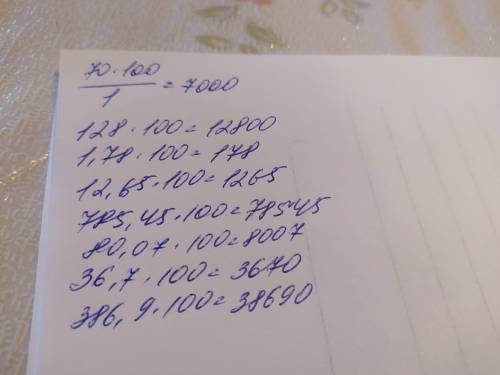 70·100
1 = 7000
128·100=12800
1,78·100=178
12,65·100=1265
785,45·100=78545
80,07·100=8007
36,7·100=3670
386,9·100=38690